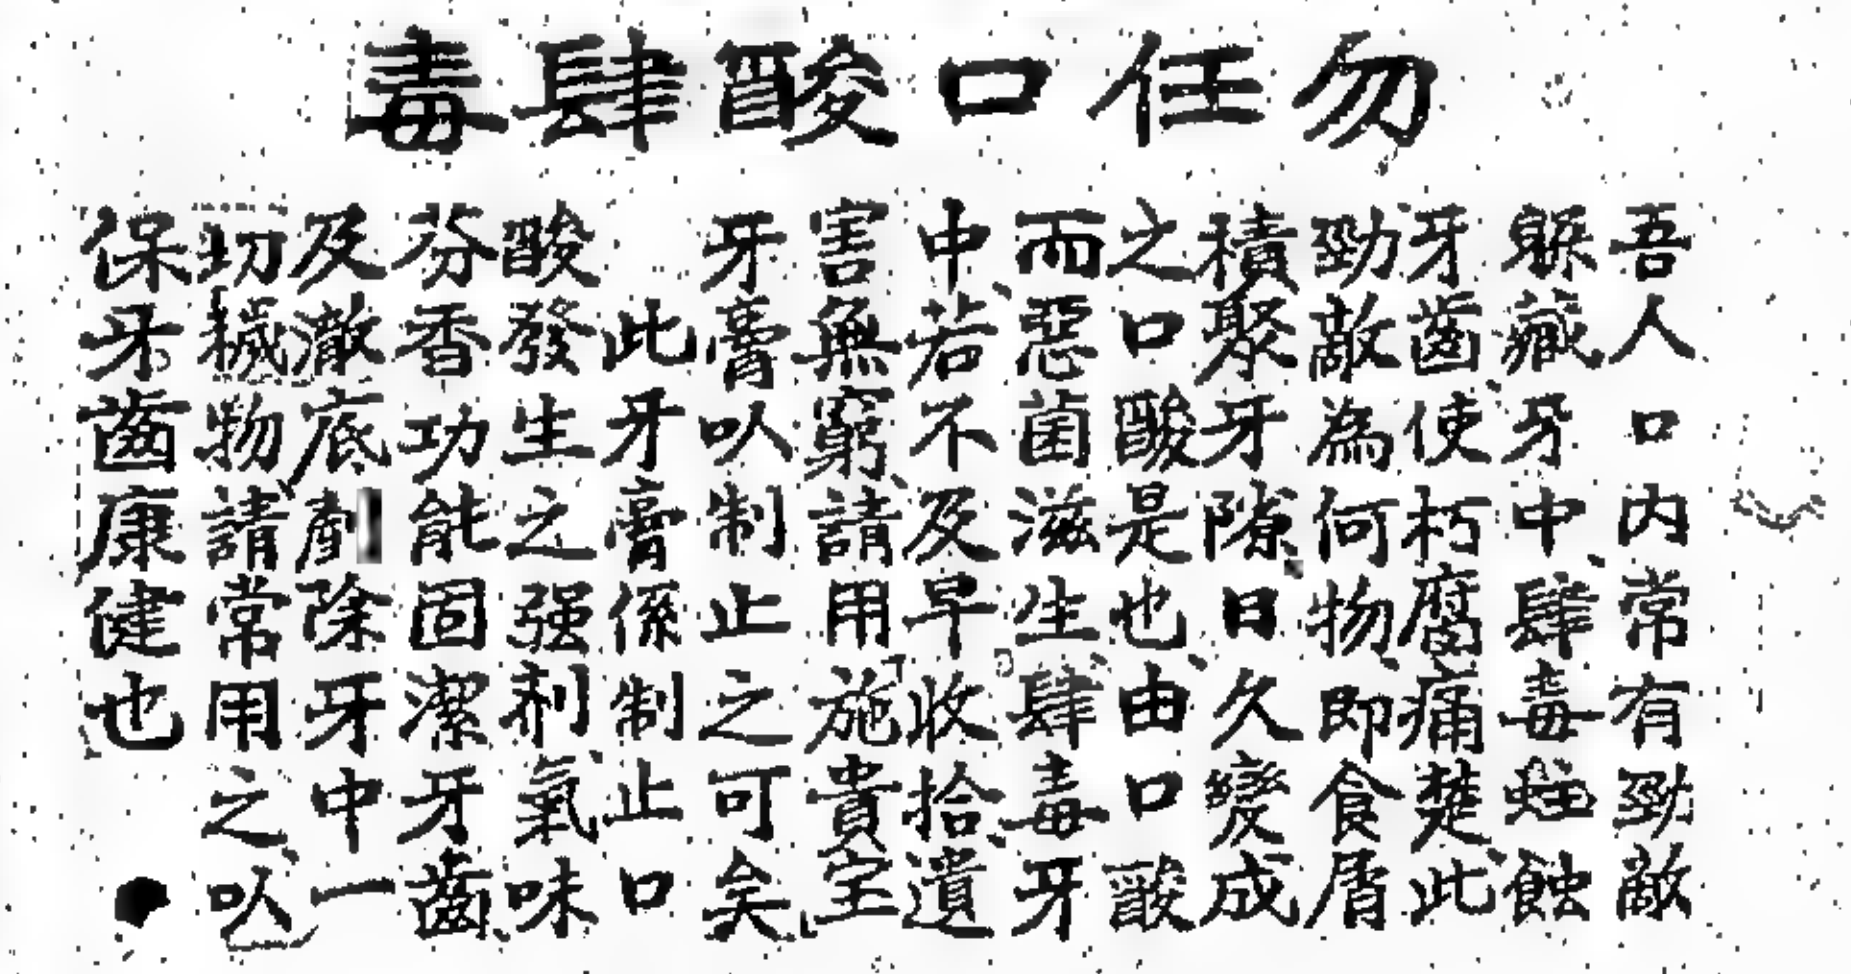 勿任口酸肆毒
吾人口内常有勁敵
躲藏牙中肆毒蛀蝕
牙齒使朽腐痛楚此
勁敵為何物即食屑
積聚牙隙日久變成
之口酸是也由口酸
而惡菌滋生肆毒牙
中若不及早收拾遺
害無窮請用施貴宝
牙膏以制止之可矣
此牙膏係制止口
酸發生之强剂氣味
芬香功能固潔牙齒
及澈底剷除牙中一
切穢物請常用之以
保牙齒康健也